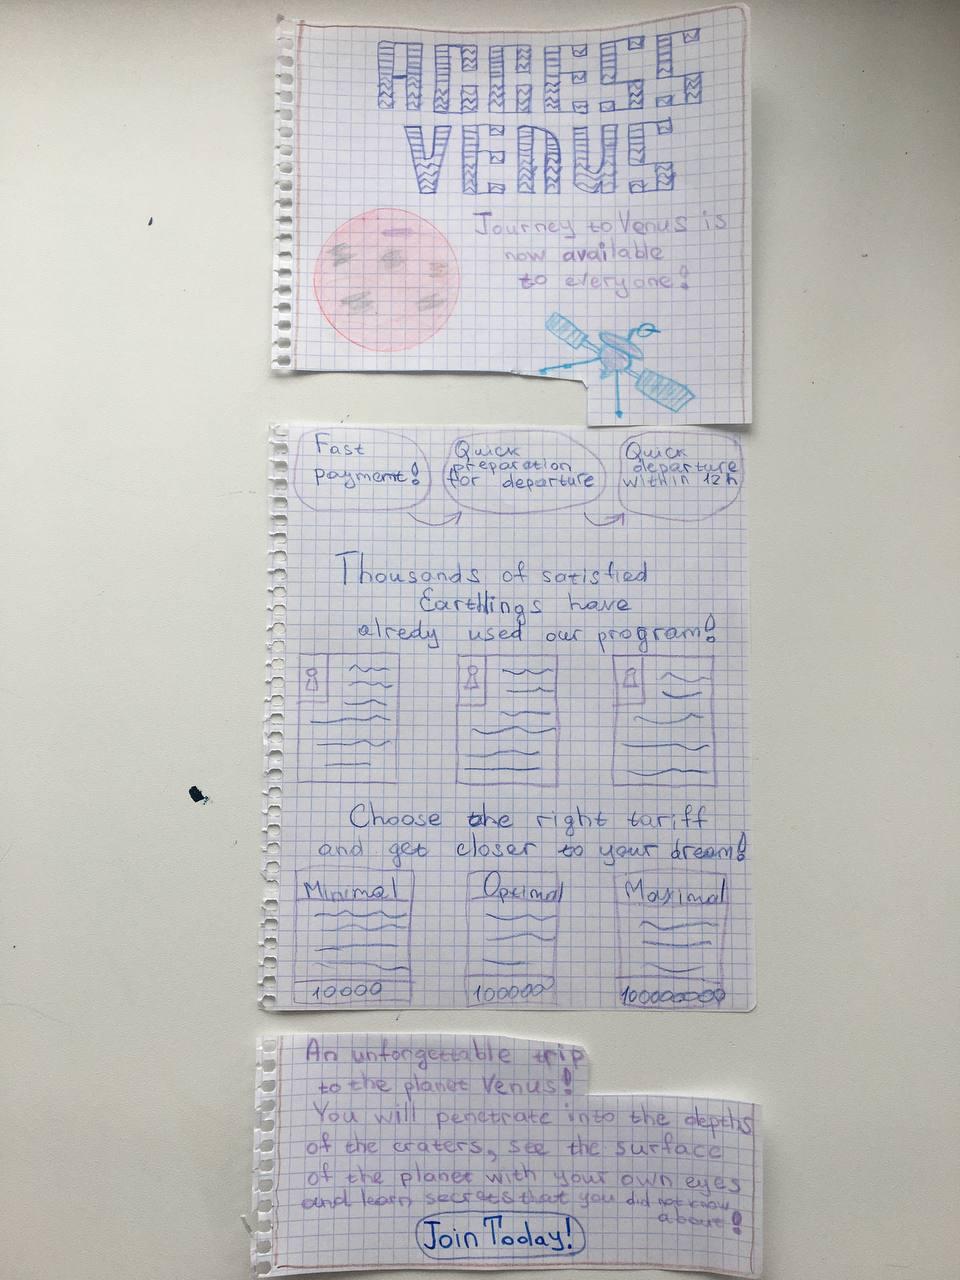 VENUS
Journey to Venus is
now available
to everyone!
Fast
payment!
Quick
preparation
for departure
Quick
departure
within 12h
Thousands of satisfied
Earthlings have
alredy used our program!
Choose the right tariff
and get closer to your dream!
Minimal
10000
Optimal
100000
Maximal
An unforgettable trip
to the planet Venus!
You will penetrate into the depths
of the craters, see the surface
of the planet with your own eyes
and learn secrets that you did not know
about!
Join Today!